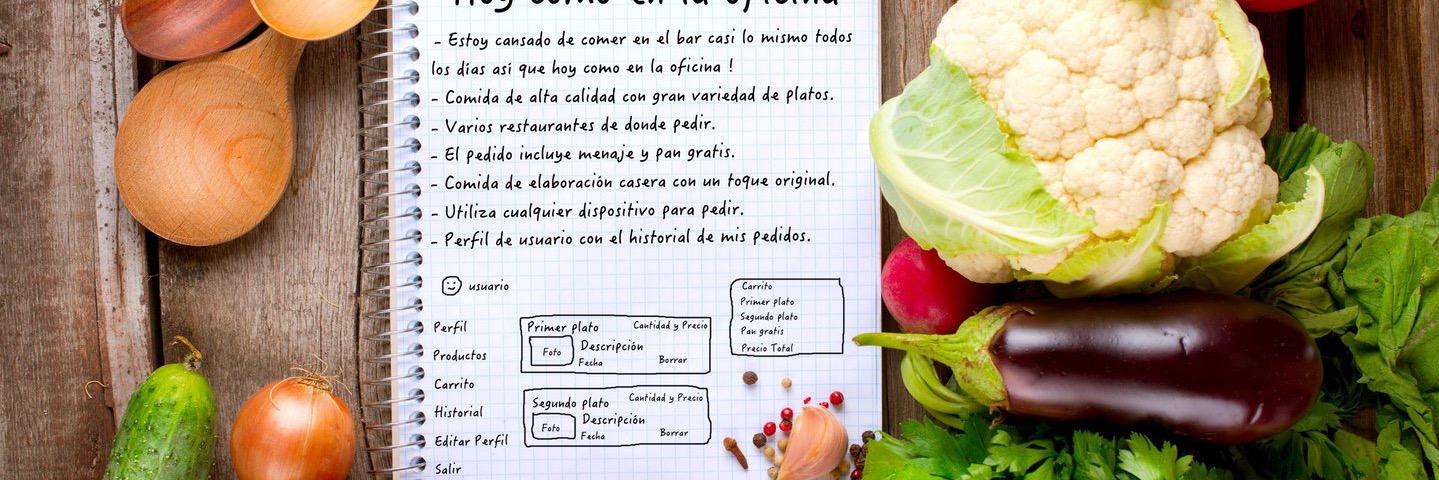 Hoy como en la oficina
- Estoy cansado de comer en el bar casi lo mismo todos
los dias asi que hoy como en la oficina !
- Comida de alta calidad con gran variedad de platos.
- Varios restaurantes de donde pedir.
- El pedido incluye menaje y pan gratis.
- Comida de elaboración casera con un toque original.
- Utiliza cualquier dispositivo para pedir.
- Perfil de usuario con el historial de mis pedidos.
usuario
Perfil
Productos
Carrito
Historial
Editar Perfil
Salir
Primer plato Cantidad y Precio
Foto Descripción
Fecha Borrar
Segundo plato Cantidad y Precio
Foto Descripción
Fecha Borrar
Carrito
Primer plato
Segundo plato
Pan gratis
Precio Total